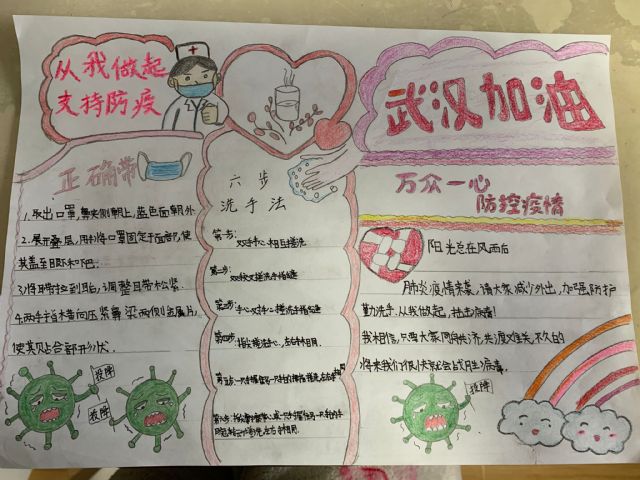 从我做起
支持防疫
正确带
1.取出口罩,鼻夹侧朝上,蓝色面朝外
2.展开叠层,用料将口罩固定于面部,使
其盖至眼和下巴.
3.将耳带拉到耳后,调整耳带松紧.
4.两手
横向压紧鼻梁两侧金属片,
使其贴合部形状.
六步
洗手法
第一步:
双手手心相互搓洗
第二步:
双手交叉搓洗手指缝
第三步:
手心对手心搓洗手指缝
第四步:
指尖搓洗手心,左右手相同.
第五步:一只手握住另一只手的拇指搓洗,左右手相同
第六步:
武汉加油
万众一心
防控疫情
阳光总在风雨后
肺炎疫情来袭,请大家减少外出,加强防护
勤洗手.从我做起,抗击病毒!
我相信,只要大家同舟共济,共渡难关,不久的
将来我们很快就会战胜病毒.
投降
投降
投降